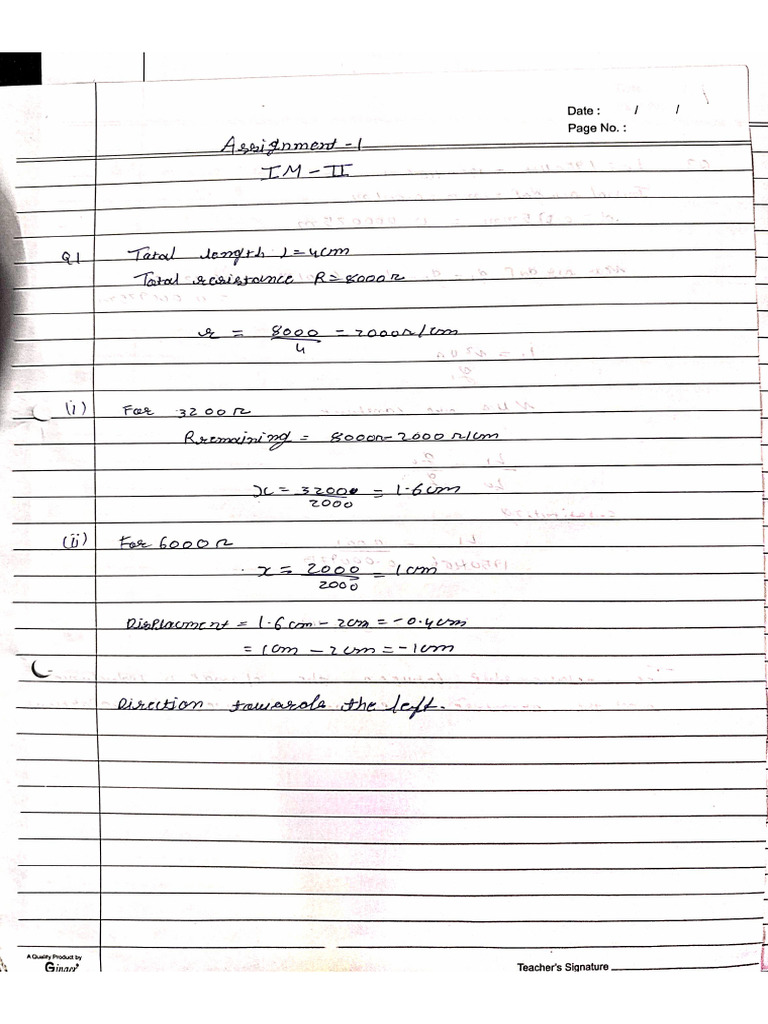 Date : / /
Page No. :
Assignment-1
IM-II
Q1 Total length l=4cm
Total resistance R=8000Ω
r = 8000/4 = 2000Ω/cm
(i) For 3200Ω
Rremaining = 8000Ω-2000Ω/cm
x = 3200/2000 = 1.6cm
(ii) For 6000Ω
x = 2000/2000 = 1cm
Displacment = 1.6cm - 2cm = -0.4cm
= 1cm - 2cm = -1cm
Direction towards the left.
A Quality Product by
Teacher's Signature